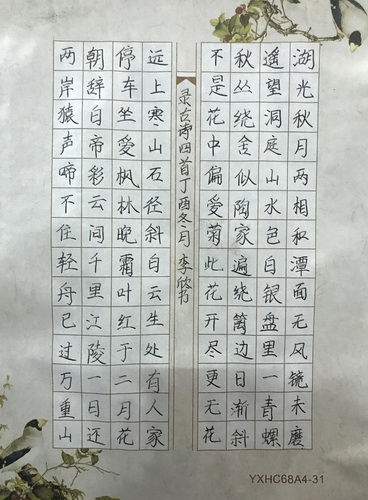 湖光秋月两相和潭面无风镜未磨
遥望洞庭山水色白银盘里一青螺
秋丛绕舍似陶家遍绕篱边日渐斜
不是花中偏爱菊此花开尽更无花
录古诗四首丁酉冬月李欣书
远上寒山石径斜白云生处有人家
停车坐爱枫林晚霜叶红于二月花
朝辞白帝彩云间千里江陵一日还
两岸猿声啼不住轻舟已过万重山
YXHC68A4-31